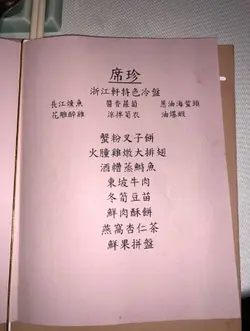 席珍
浙江軒特色冷盤
長江燻魚 醬香蘿蔔 蔥油海蜇頭
花雕醉雞 涼拌萵衣 油爆蝦
蟹粉叉子餅
火腫雞燉大排翅
酒糟蒸鰣魚
東坡牛肉
冬筍豆苗
鮮肉酥餅
燕窩杏仁茶
鮮果拼盤